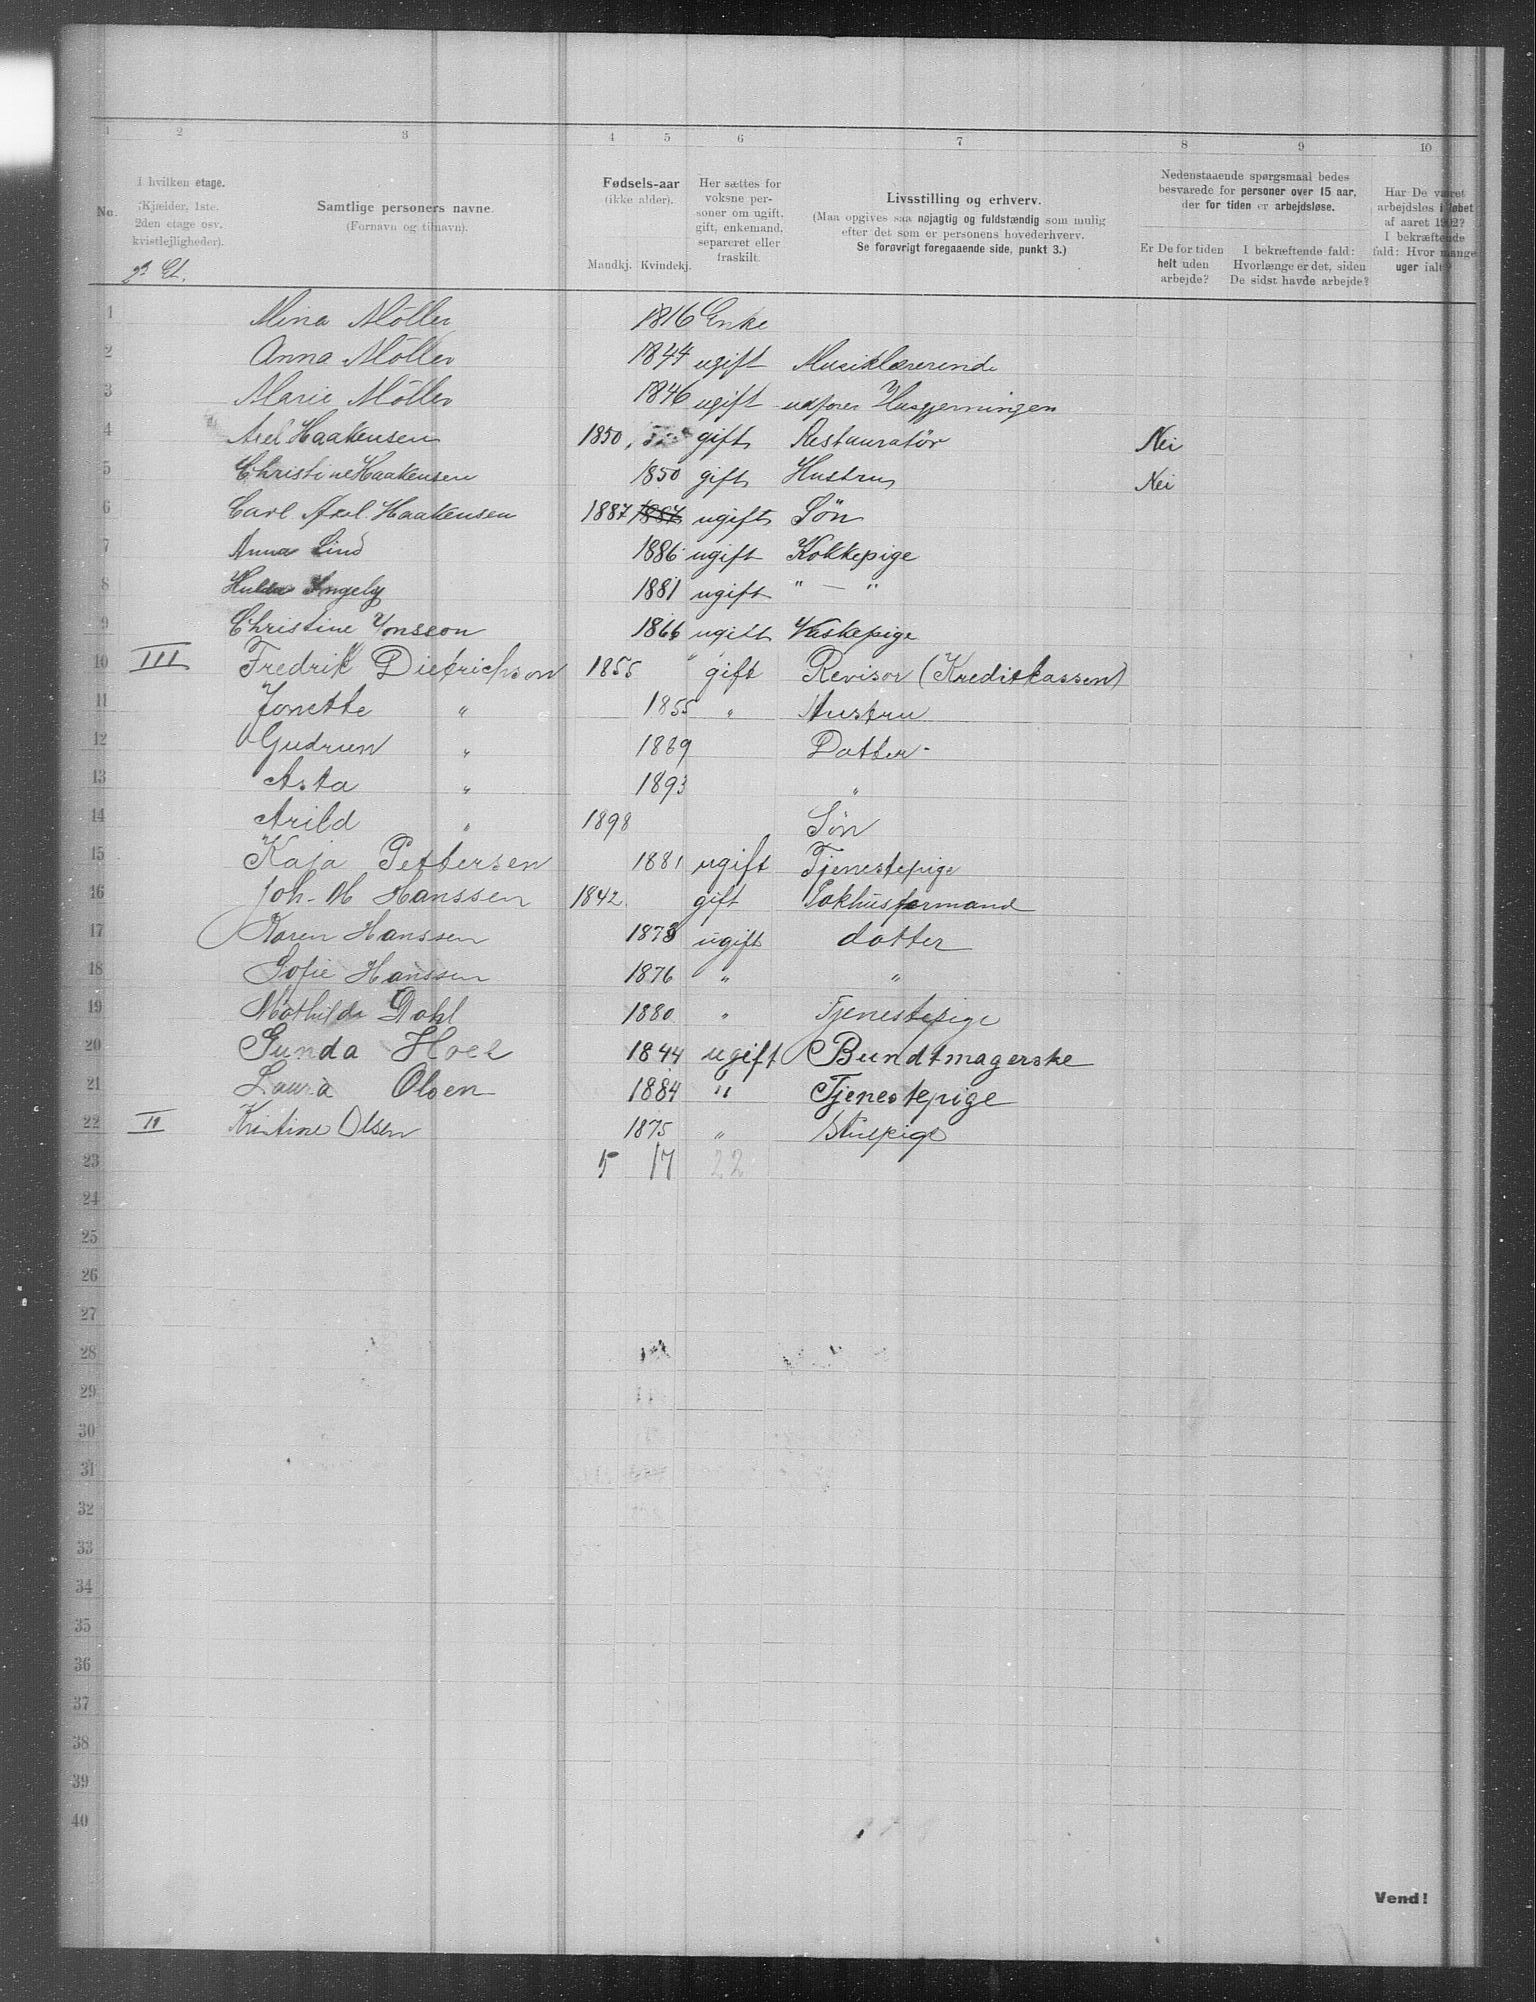 1 2 3 4 5 6 7 8 9 10
No.
I hvilken etage.
(Kjælder, 1ste.
2den etage osv.
kvistlejligheder).
Samtlige personers navne.
(Fornavn og tilnavn).
Fødsels-aar
(ikke alder).
Mandkj. Kvindekj.
Her sættes for
voksne per-
soner om ugift,
gift, enkemand,
separeret eller
fraskilt.
Livsstilling og erhverv.
(Maa opgives saa nøjagtig og fuldstændig som mulig
efter det som er personens hovederhverv.
Se forøvrigt foregaaende side, punkt 3.)
Nedenstaaende spørgsmaal bedes
besvarede for personer over 15 aar,
der for tiden er arbejdsløse.
Er De for tiden
helt uden
arbejde?
I bekræftende fald:
Hvorlænge er det, siden
De sidst havde arbejde?
Har De været
arbejdsløs i løbet
af aaret 1902?
I bekræftende
fald: Hvor mange
uger ialt?
2 Et.
1 Mina Möller 1816 Enke
2 Anna Möller 1844 ugift Musiklærerinde
3 Marie Möller 1846 ugift udfører Husgjerningen
4 Axel Haakensen 1850 gift Restauratör Nei
5 Christine Haakensen 1850 gift Hustru Nei
6 Carl Axel Haakensen 1887 1887 ugift Sön
7 Anna Lind 1886 ugift Kokkepige
8 Hulda Engely 1881 ugift " — "
9 Christine Jonsson 1866 ugift Vaskepige
10 III Fredrik Dietrichson 1855 " gift Revisor (Kreditkassen)
11 Jonette " 1855 " Hustru
12 Gudrun " 1889 Datter
13 Asta " 1893 "
14 Arild " 1898 Søn
15 Kaja Pettersen 1881 ugift Tjenestepige
16 Joh. M Hanssen 1842 gift Pakhusformand
17 Karen Hanssen 1873 ugift datter
18 Sofie Hanssen 1876 " "
19 Mathilde Dahl 1880 " Tjenestepige
20 Gunda Hoel 1844 ugift Bundtmagerske
21 Laura Olsen 1884 " Tjenestepige
22 IV Kristine Olsen 1875 " Stuepige
23 5 17 22
24
25
26
27
28
29
30
31
32
33
34
35
36
37
38
39
40
Vend!